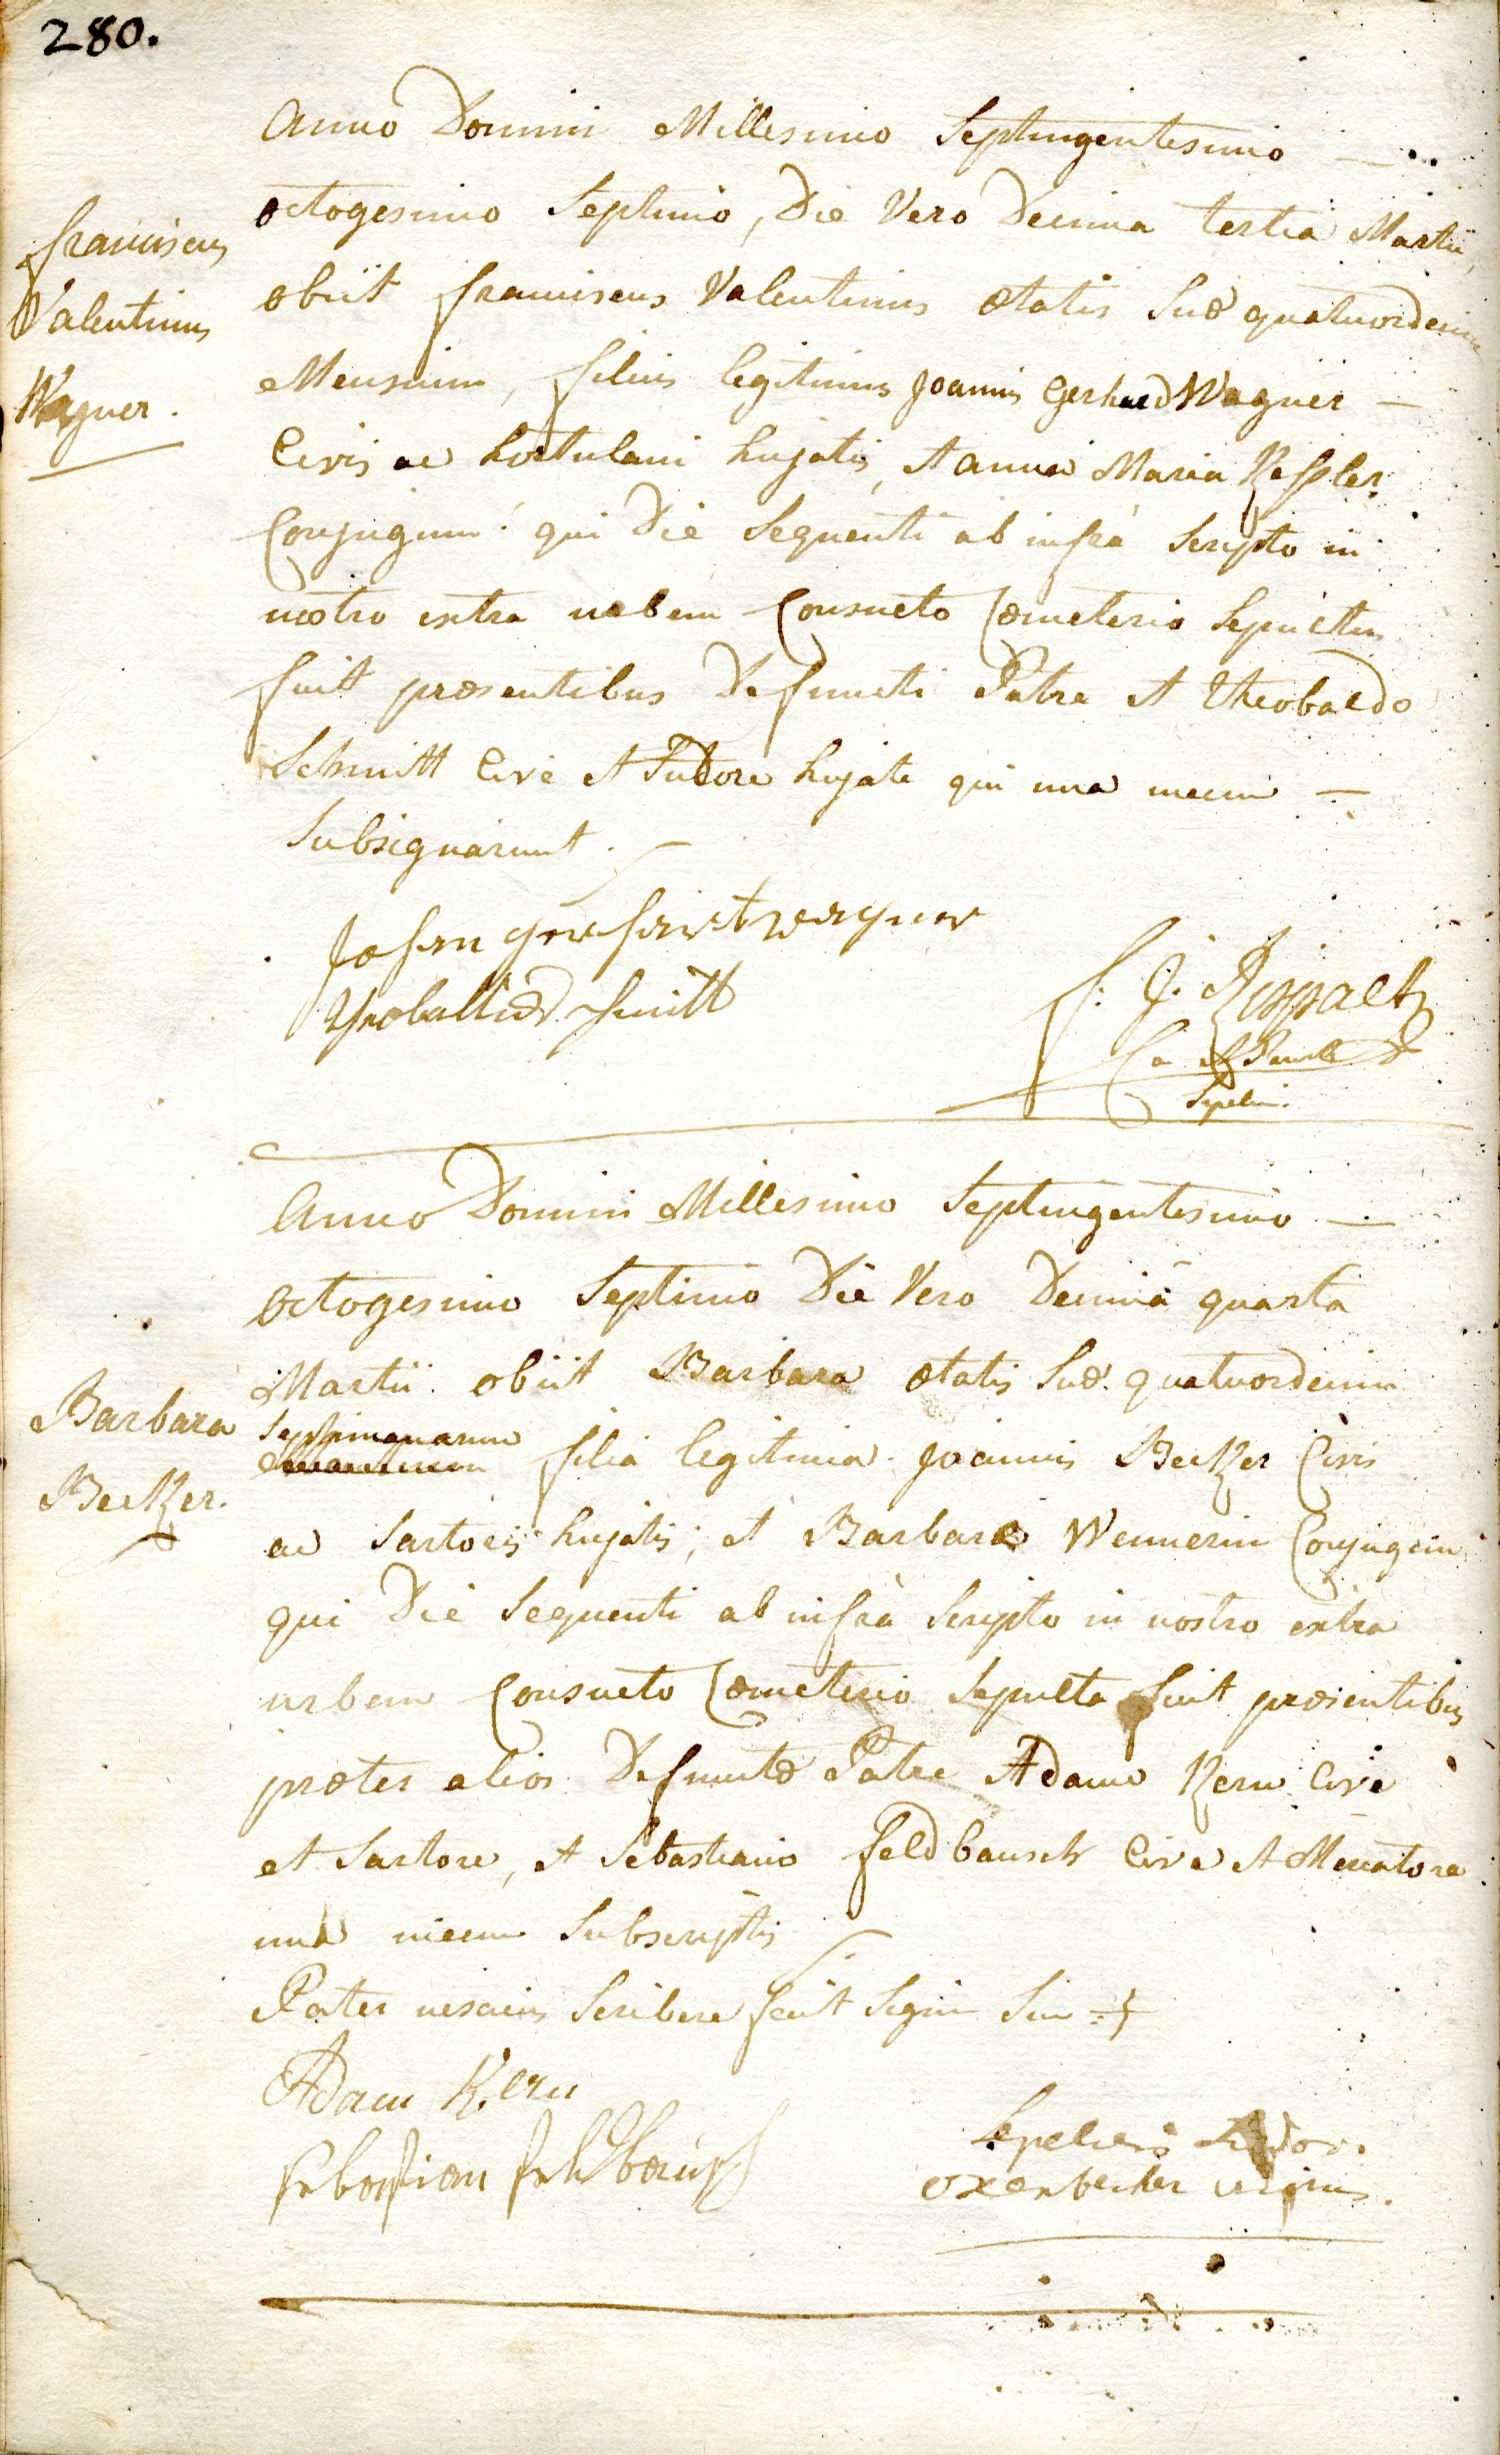 280.
Anno Domini Millesimo Septingentesimo —
octogesimo Septimo, Die Vero Decima tertia Martii,
Franciscus
Valentinus
Wagner.
obiit franciscus Valentinus ætatis suæ quatuordecim
Mensium, filius legitimus Joannis Gerhard Wagner —
Civis ac hortulani hujatis, et anna Maria Kessler
Conjugum: qui Die Sequenti ab infrà Scripto in
nostro extra urbem Consueto Cœmeterio Sepultus
fuit præsentibus Defuncti Patre et Theobaldo
Schmitt Cive et Sutore hujate qui una mecum —
Subsignarunt.
Johan Wagner
Theobalt Schmitt
F. J.
Sepelivi.
Anno Domini Millesimo Septingentesimo —
octogesimo Septimo Die Vero Decimâ quarta
Barbara
Becker.
Martii obiit Barbara ætatis suæ quatuordecim
Septimanarum filia legitima Joannis Becker Civis
ac Sartoris hujatis, et Barbaræ Wennerin Conjugum
qui Die Sequenti ab infrà Scripto in nostro extra
urbem Consueto Cœmeterio Sepulta fuit præsentibus
præter alios Defunctæ Patre Adamo Kern Cive
et Sartore, et Sebastiano feldbausch Cive et Mercatore
unà mecum Subscriptis
Pater nesciens Scribere fecit Signum Suum +
Adam Kern
Sebastian feldbausch
Sepelivi